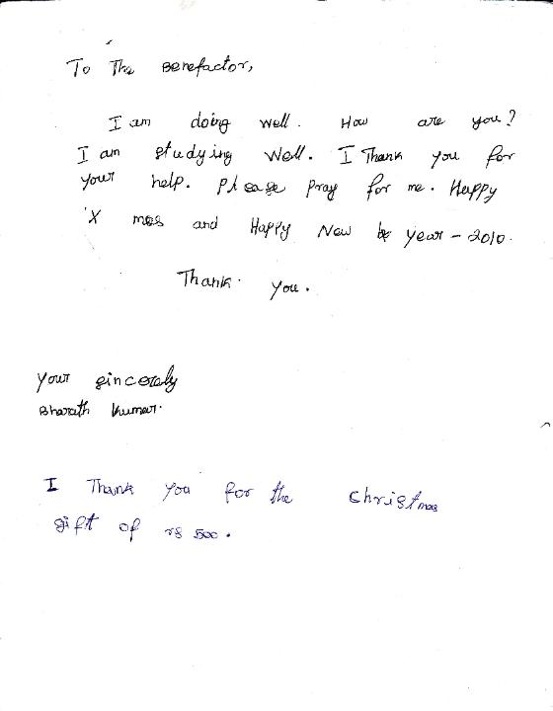 To The Benefactor,
I am doing well. How are you?
I am studying well. I Thank you for
your help. Please pray for me. Happy
'X mas and Happy New year - 2010.
Thank you.
your sincerely
Bharath Kumar.
I Thank you for the Christmas
gift of rs 500.